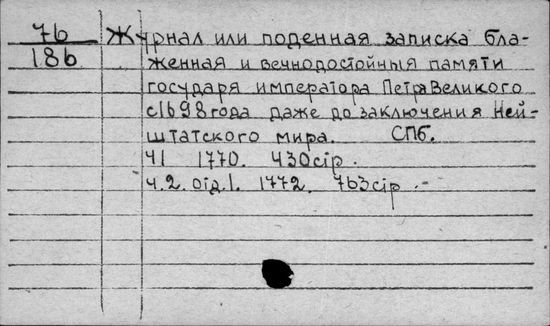 76
186
Журнал или поденная записка бла-
женная и вечнодостойныя памяти
государя императора Петра Великого
с 1698 года даже до заключения Ней-
штатского мира. СПб.
ч1 1770. 430сір.
ч.2. від.1. 1772. 763сір.-